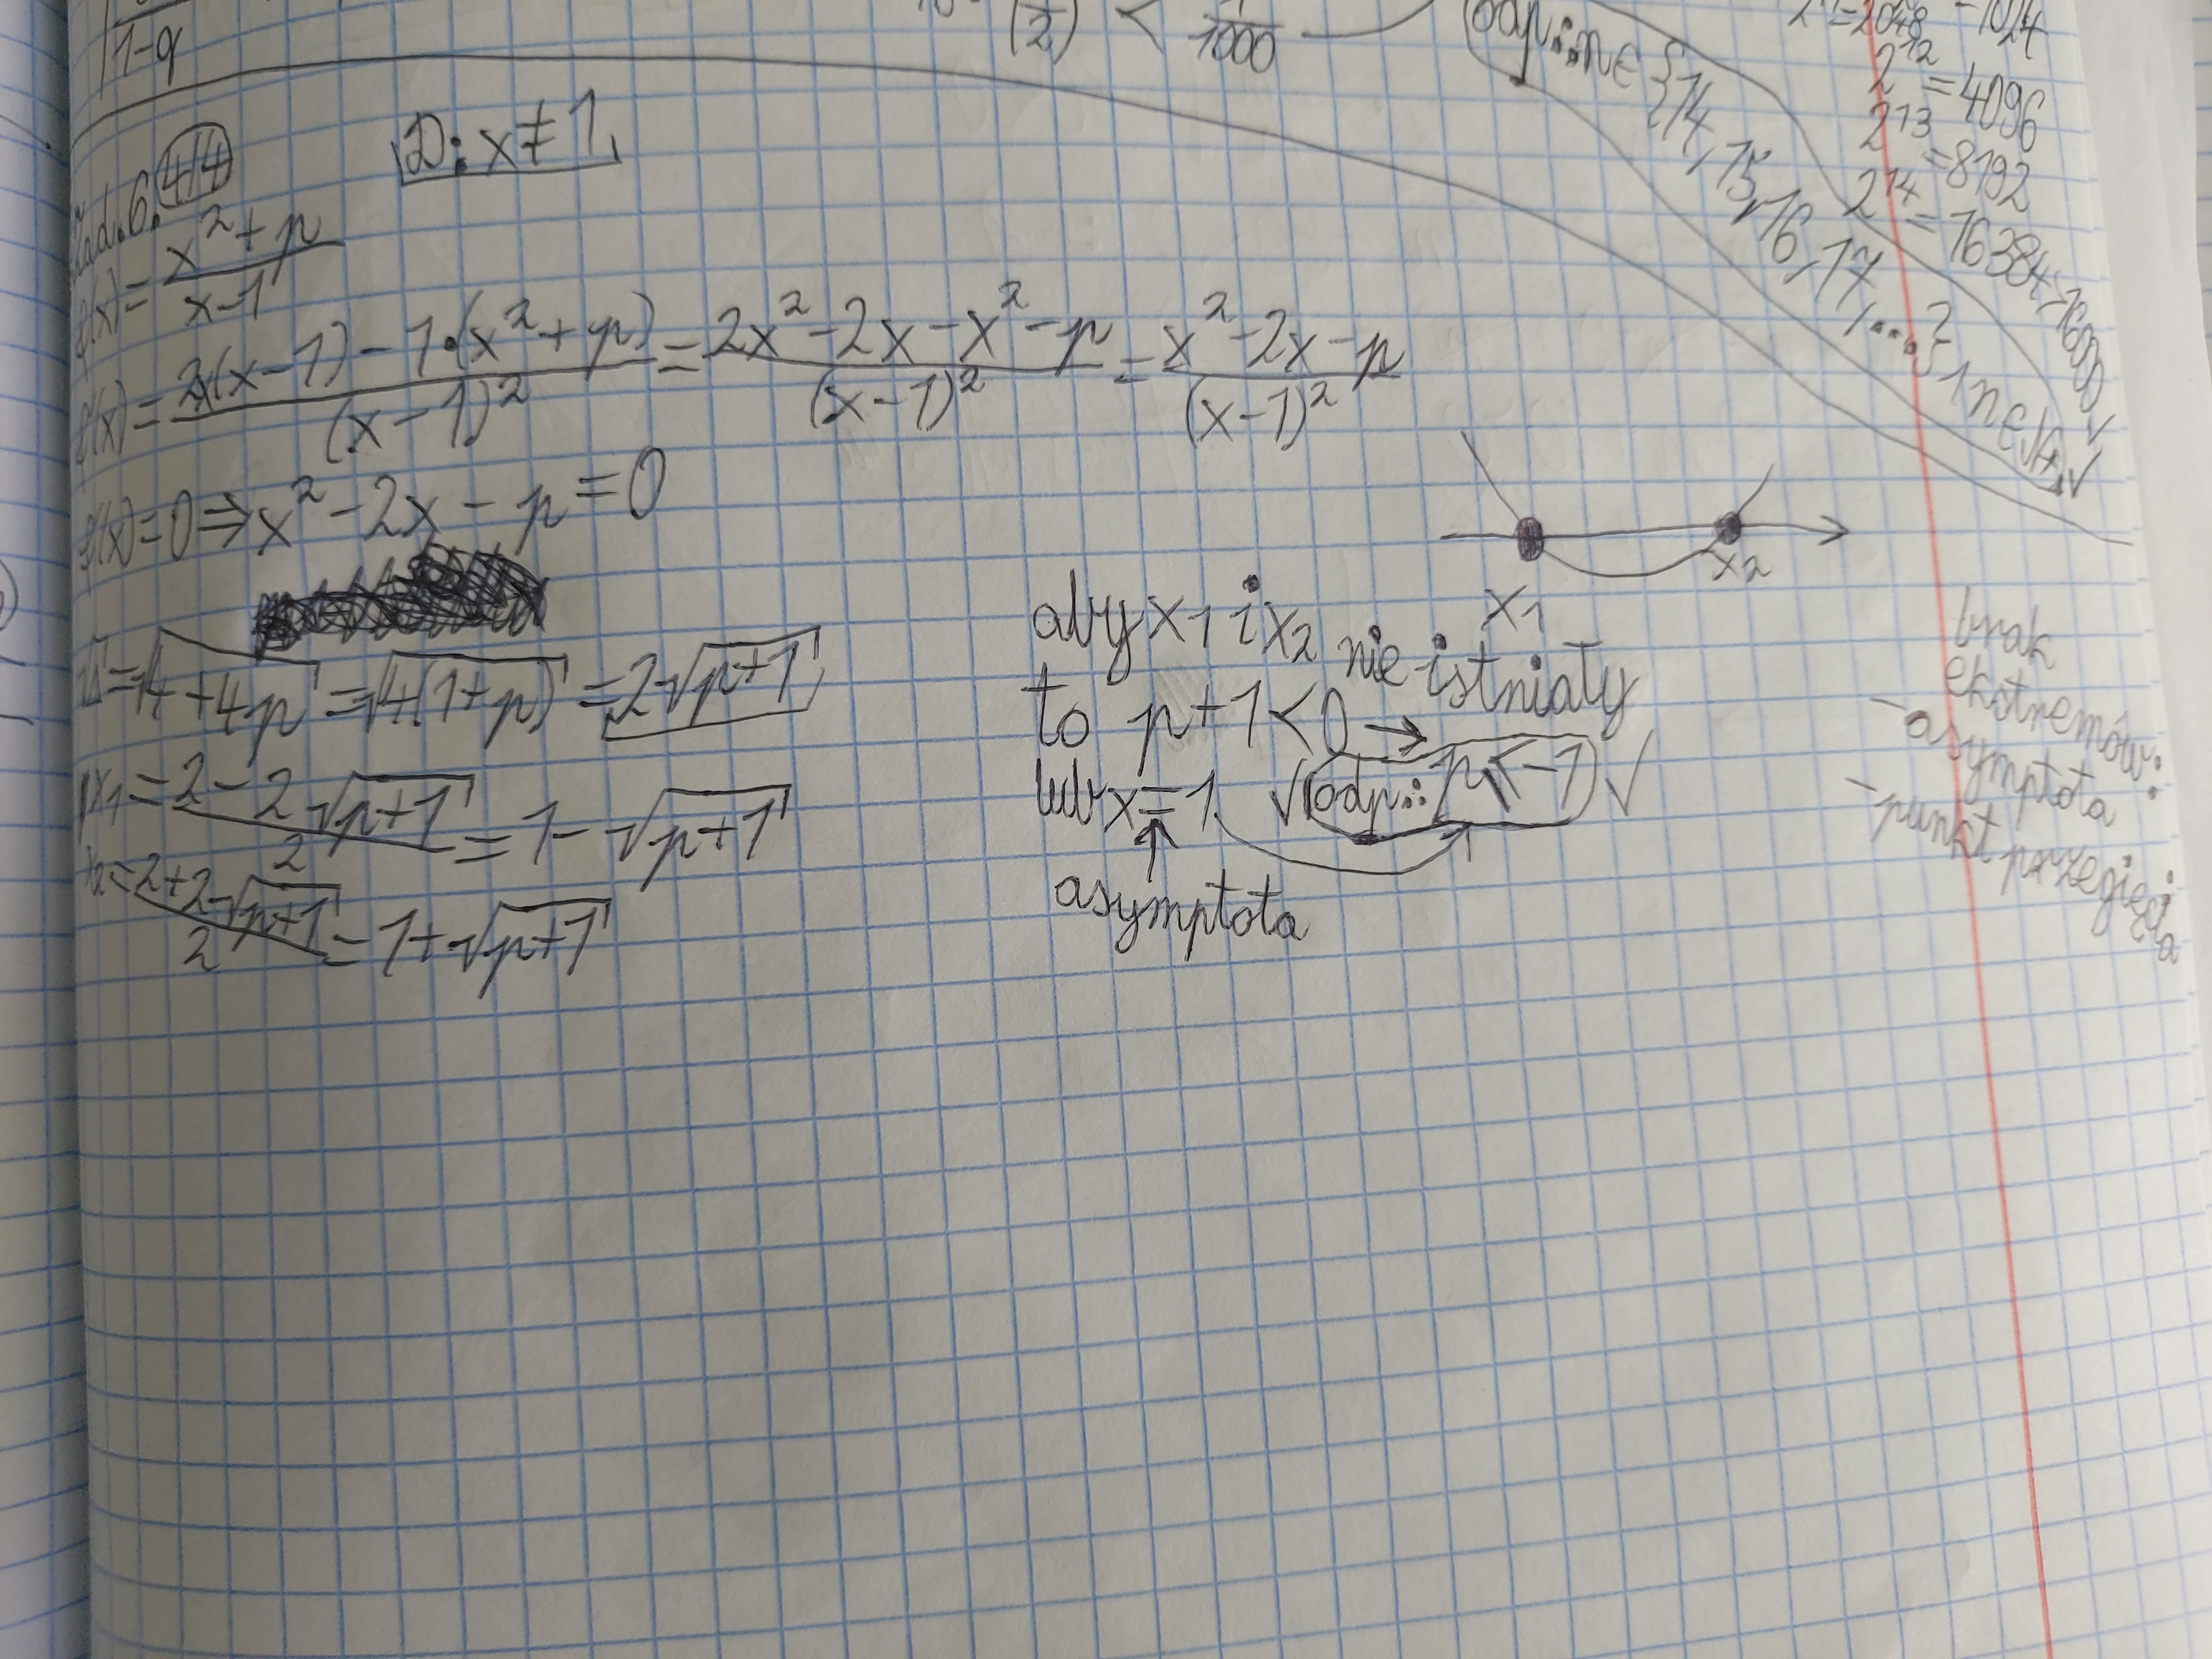 1-q
(1/2) < 1/1000
odp.: n ∈ {14, 15, 16, 17, ...} ∧ n ∈ N+ ✓
= 2048
= 1024
2^12 = 4096
2^13 = 8192
2^14 = 16384 > 16000 ✓
Zad. 6. (4/4)
D: x ≠ 1
f(x) = (x² + p)/(x-1)
f'(x) = (2x(x-1) - 1·(x² + p))/(x-1)² = (2x² - 2x - x² - p)/(x-1)² = (x² - 2x - p)/(x-1)²
f'(x) = 0 ⇒ x² - 2x - p = 0
√Δ = √(4+4p) = √(4(1+p)) = 2√(p+1)
x₁ = (2 - 2√(p+1))/2 = 1 - √(p+1)
x₂ = (2 + 2√(p+1))/2 = 1 + √(p+1)
x₁
x₂
aby x₁ i x₂ nie istniały
to p+1 < 0 →
lub x = 1 ✓ odp.: p ≤ -1 ✓
↑
asymptota
brak
ekstremów:
- asymptota
- punkt przegięcia